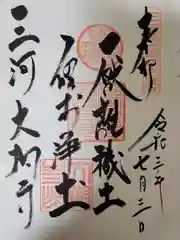 奉拝
令和三年七月三日
厭離穢土
欣求浄土
三河 大樹寺